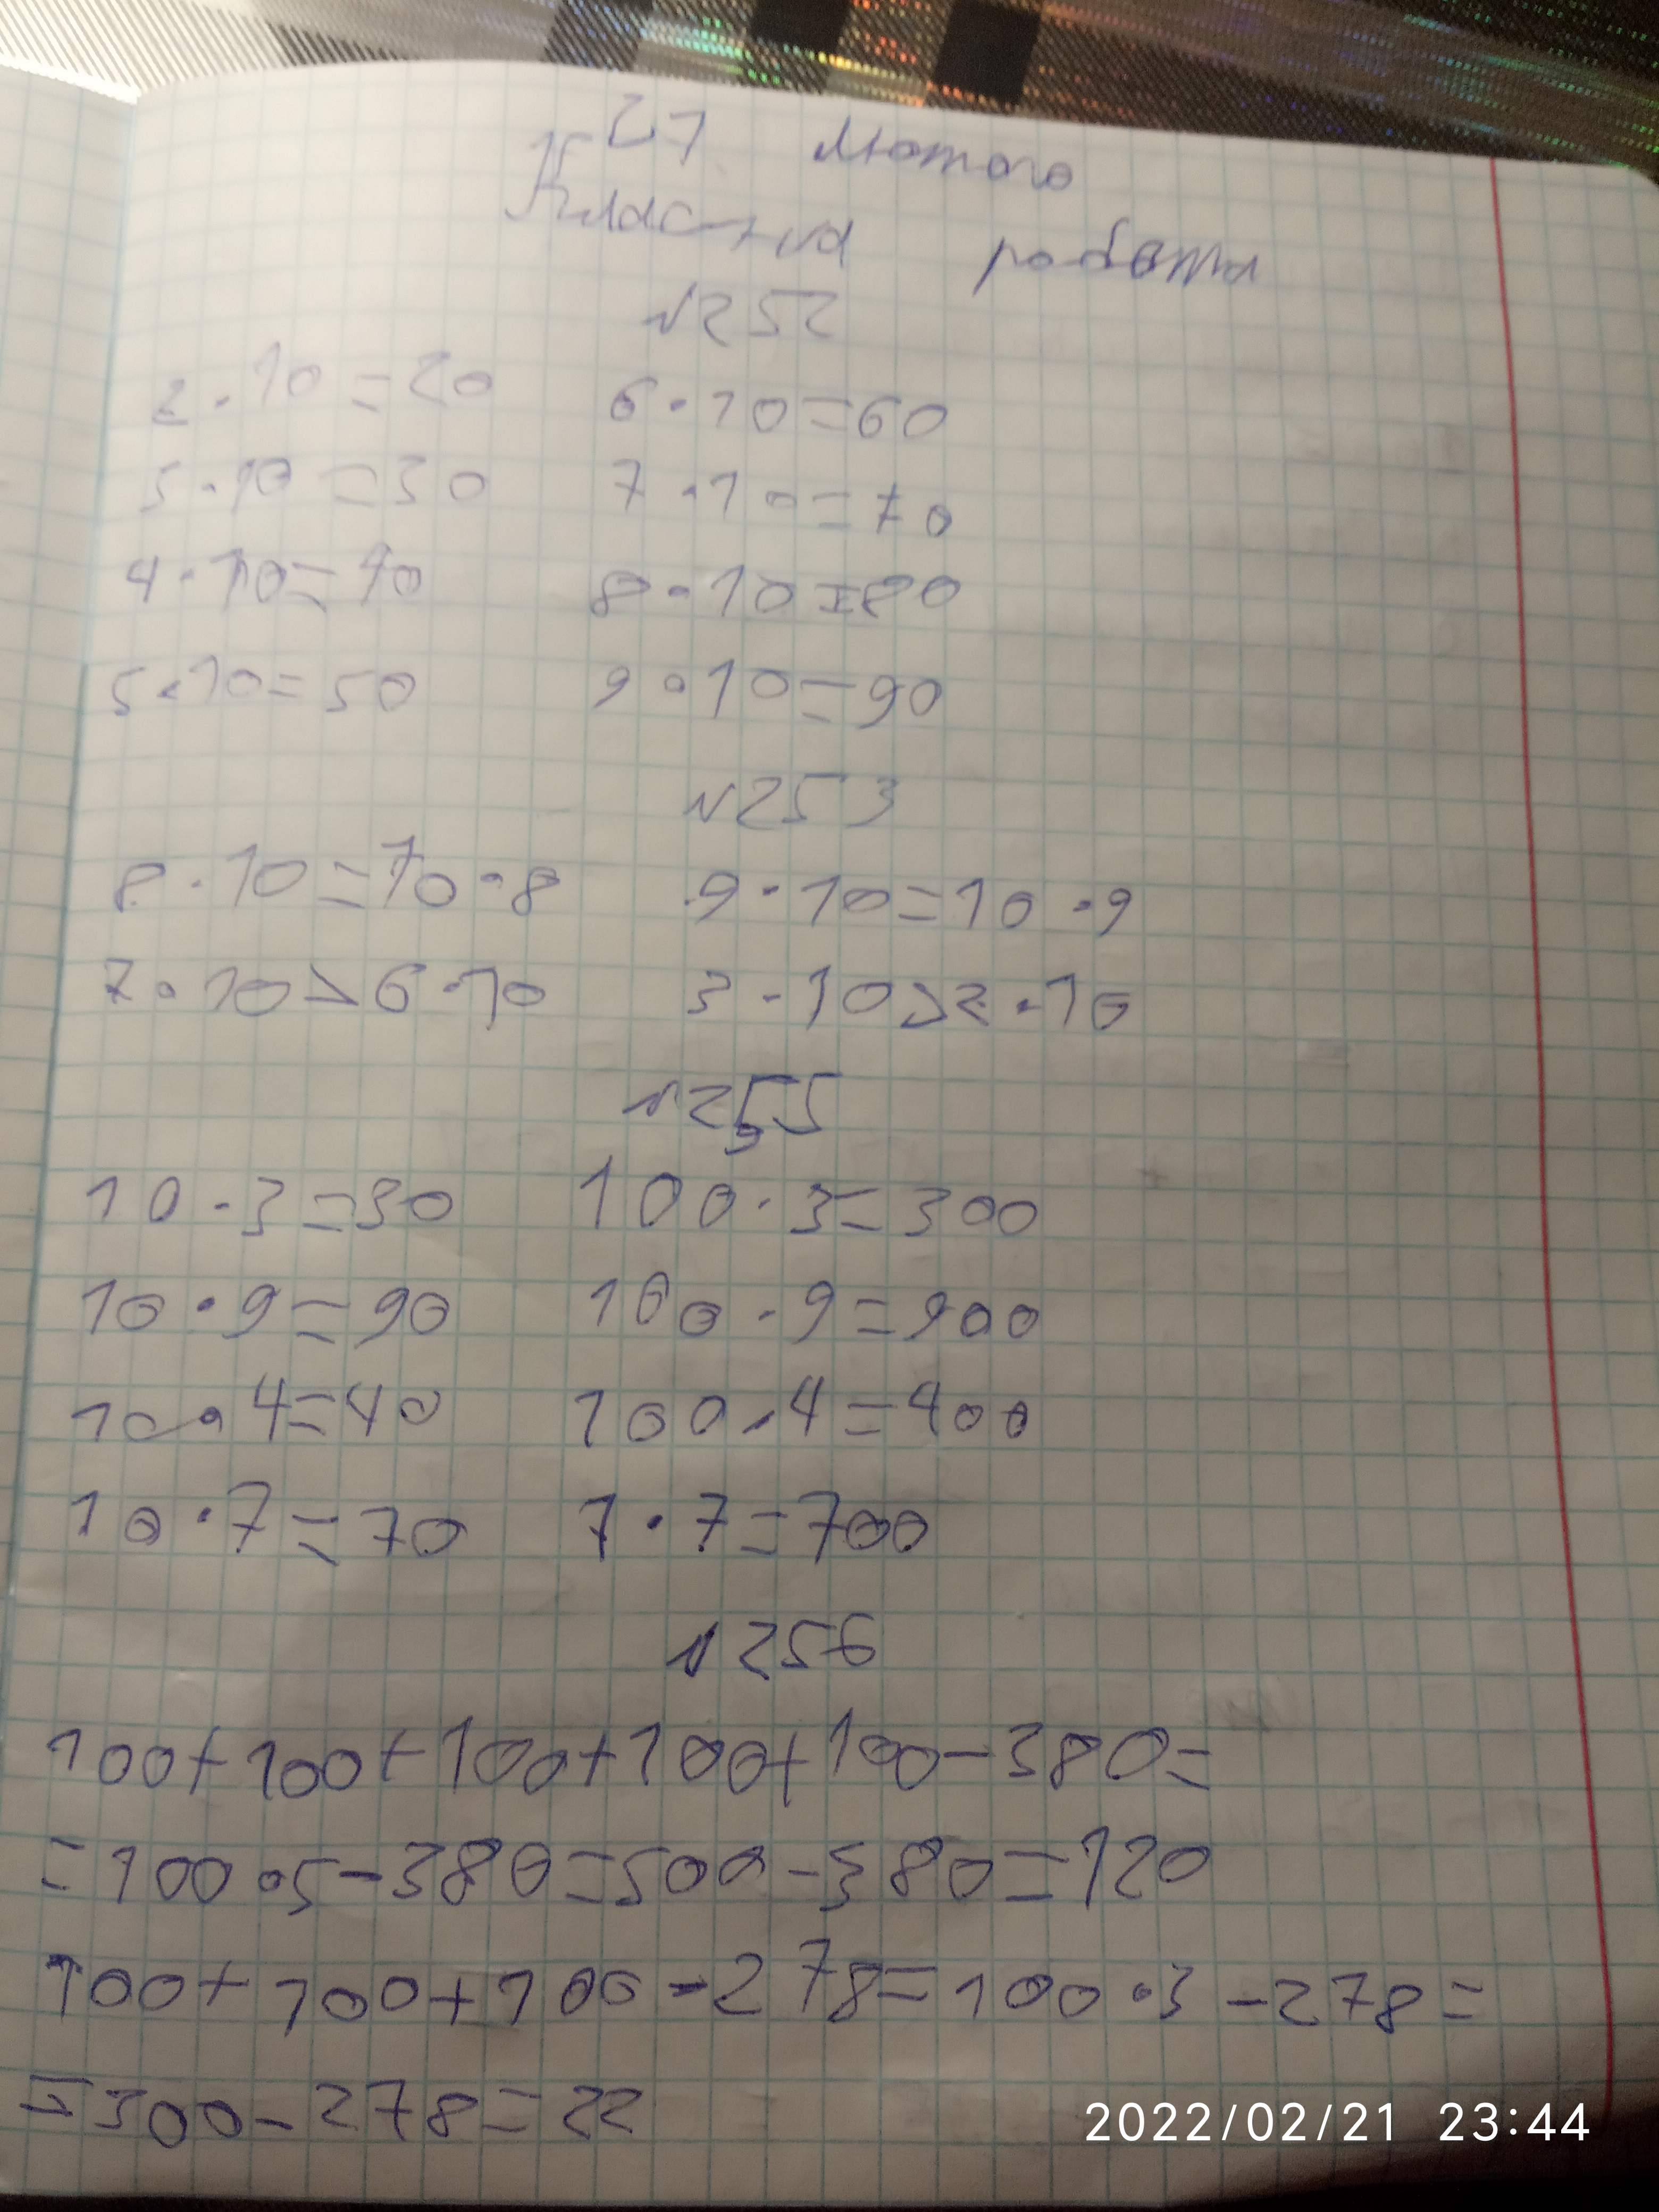 21 лютого
Класна робота
№252
2·10=20 6·10=60
3·10=30 7·10=70
4·10=40 8·10=80
5·10=50 9·10=90
№253
8·10=10·8 9·10=10·9
7·10>6·10 3·10>2·10
№255
10·3=30 100·3=300
10·9=90 100·9=900
10·4=40 100·4=400
10·7=70 7·7=700
№256
100+100+100+100+100-380=
=100·5-380=500-380=120
100+100+100-278=100·3-278=
=300-278=22
2022/02/21 23:44